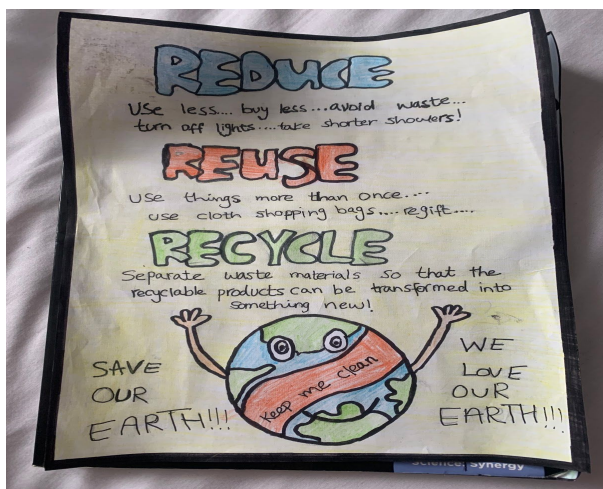 REDUCE
Use less.... buy less...avoid waste...
turn off lights....take shorter showers!
REUSE
Use things more than once....
use cloth shopping bags.... regift....
RECYCLE
Separate waste materials so that the
recyclable products can be transformed into
something new!
Keep me clean
SAVE
OUR
EARTH!!!
WE
LOVE
OUR
EARTH!!!
Science, Synergy